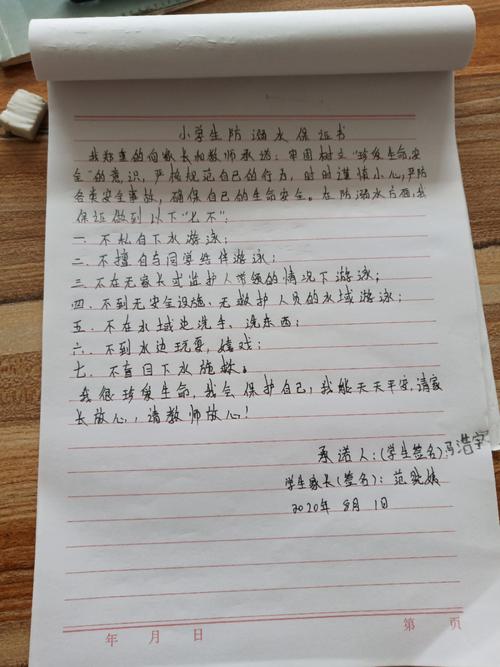 小学生防溺水保证书
我郑重的向家长和教师承诺：牢固树立“珍爱生命，安
全”的意识，严格规范自己的行为，时时谨慎小心，严防
各类安全事故，确保自己的生命安全。在防溺水方面，我
保证做到以下“七不”：
一、不私自下水游泳；
二、不擅自与同学结伴游泳；
三、不在无家长或监护人带领的情况下游泳；
四、不到无安全设施、无救护人员的水域游泳；
五、不在水域边洗手、洗东西；
六、不到水边玩耍，嬉戏；
七、不盲目下水施救。
我很珍爱生命，我会保护自己，我能天天平安，请家
长放心，请教师放心！
承诺人：（学生签名）冯浩宇
学生家长（签名）：范
2020年 8月 1日
年 月 日
第 页